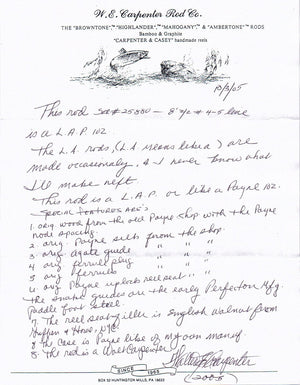 W.E. Carpenter Rod Co.
THE "BROWNTONE", "HIGHLANDER", "MAHOGANY", & "AMBERTONE" RODS
Bamboo & Graphite
"CARPENTER & CASEY" handmade reels
10/3/05
This rod - 8' 4-5 line
is a L.A.P. 102
The L.A. rods, (LA means like a) are
made occasionaly, & I never know what
I'll make next.
This rod is a L.A.P. or like a Payne 102.
Special features are:
1. orig. wood from the old Payne shop with the Payne
node spacing.
2. orig. Payne silks from the shop.
3. orig. agate guide " " "
4. orig ferrule plug " " "
5. orig ferrules " " "
6. orig Payne uplock reel seat " "
the snake guides are the early Perfection Mfg.
Paddle foot steel.
7. The reel seat filler is English walnut from
Hoffman & Howe, NYC.
8. The case is Payne like of my own manuf.
8. the rod is a Walt Carpenter
Walter Carpenter
2005
SINCE 1963
BOX 52 HUNTINGTON MILLS, PA 18622